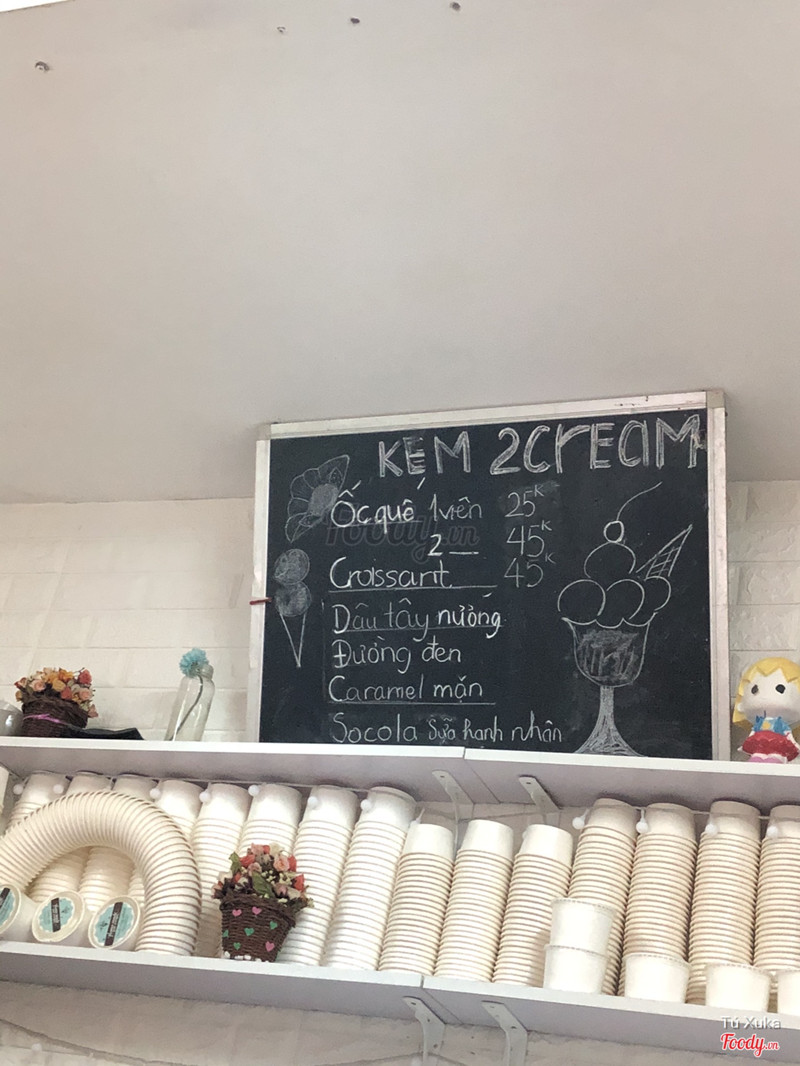 KEM 2CREAM
Ốc quế 1 viên 25K
2 — 45K
Croissant 45K
Dâu tây nướng
Đường đen
Caramel mặn
Socola Sữa hạnh nhân
Foody.vn
Tú Xuka
Foody.vn